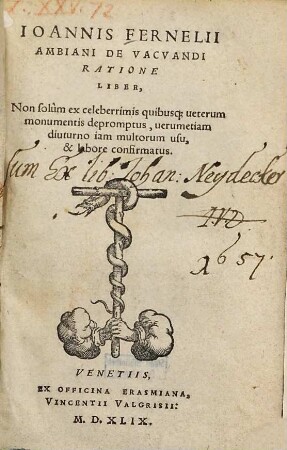 IOANNIS FERNELII
AMBIANI DE VACVANDI
RATIONE
LIBER,
Non solùm ex celeberrimis quibusq; ueterum
monumentis depromptus, uerumetiam
diuturno iam multorum usu,
& labore confirmatus.
Sum Ex lib: Johan: Neydecker
1657.
VENETIIS,
EX OFFICINA ERASMIANA,
VINCENTII VALGRISII:
M. D. XLIX.